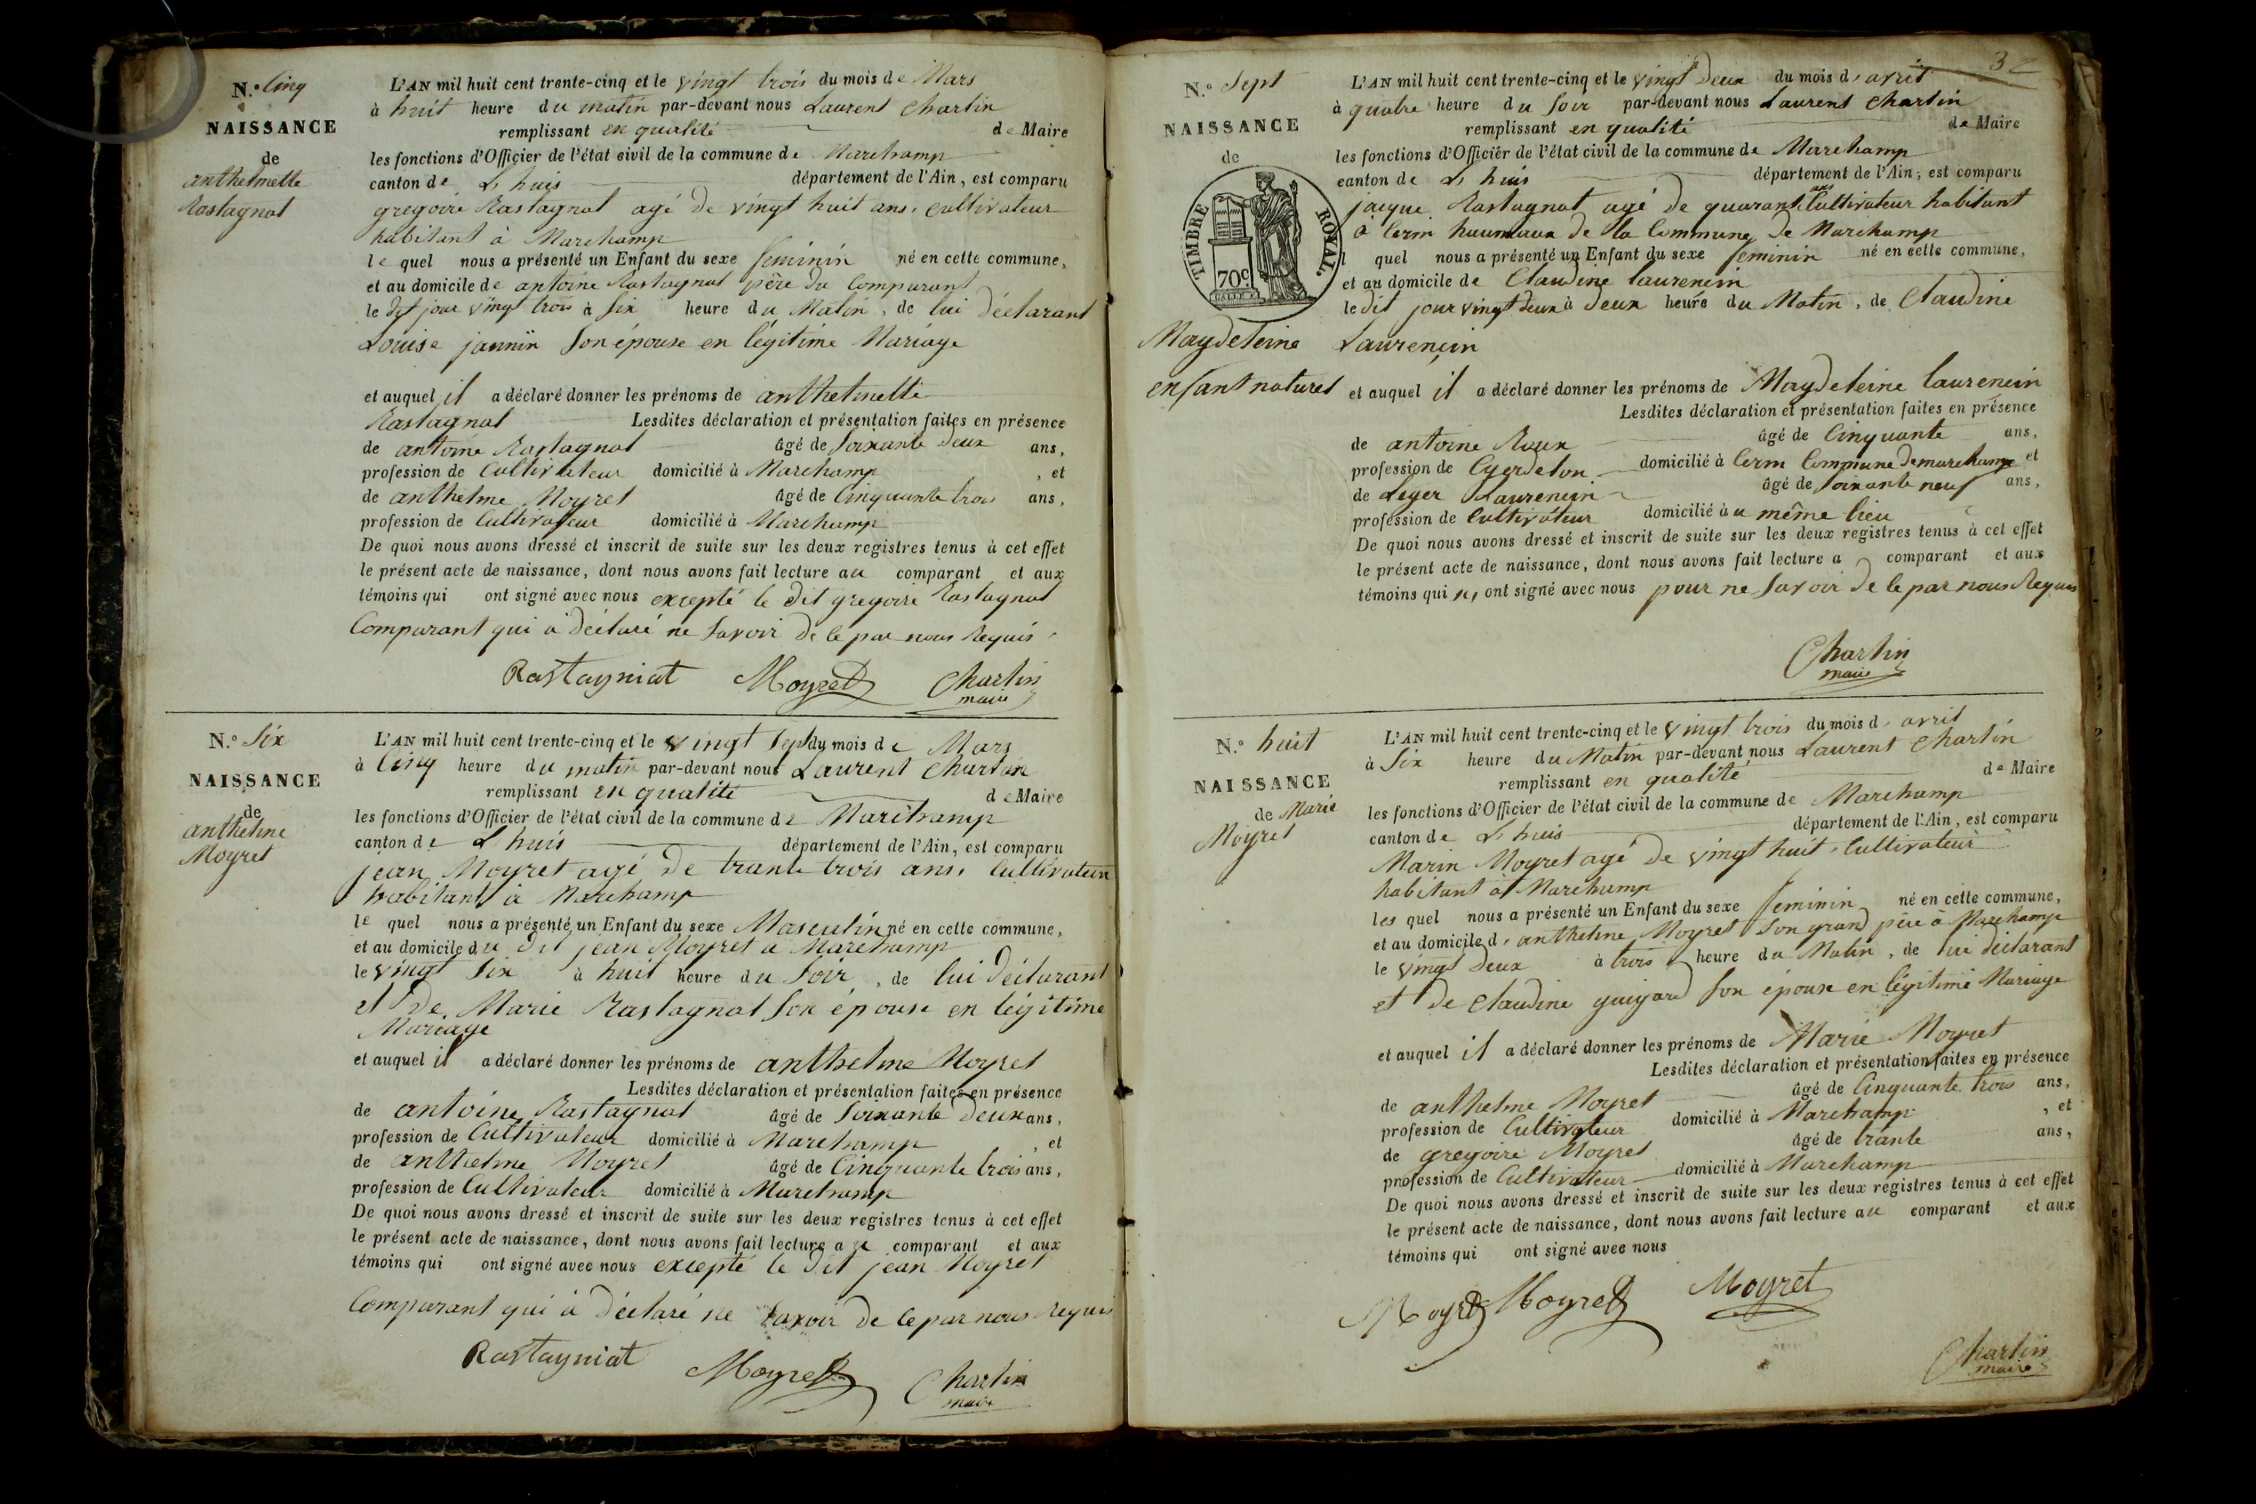 N.o Cinq
NAISSANCE
de
anthelmette
Rastagnat
L'AN mil huit cent trente-cinq et le vingt trois du mois de Mars
à huit heure du matin par-devant nous Laurent Chartin
remplissant en qualité de Maire
les fonctions d'Officier de l'état civil de la commune de Marchamp
canton de L'huis département de l'Ain, est comparu
gregoire Rastagnat agé de vingt huit ans, cultivateur
habitant à Marchamp
le quel nous a présenté un Enfant du sexe feminin né en cette commune,
et au domicile de antoine Rastagnat père du Comparant
le dit jour vingt trois à six heure du Matin, de lui déclarant
Louise jannin son épouse en légitime Mariage
et auquel il a déclaré donner les prénoms de anthelmette
Rastagnat Lesdites déclaration et présentation faites en présence
de antoine Rastagnat âgé de soixante deux ans,
profession de Cultivateur domicilié à Marchamp, et
de anthelme Moyret âgé de Cinquante trois ans,
profession de Cultivateur domicilié à Marchamp
De quoi nous avons dressé et inscrit de suite sur les deux registres tenus à cet effet
le présent acte de naissance, dont nous avons fait lecture au comparant et aux
témoins qui ont signé avec nous excepté le dit gregoire Rastagnat
Comparant qui a déclaré ne savoir de ce par nous Requis.
Rastagniat Moyret Chartin
maire
N.o Six
NAISSANCE
de
anthelme
Moyret
L'AN mil huit cent trente-cinq et le vingt sept du mois de Mars
à Cinq heure du matin par-devant nous Laurent Chartin
remplissant en qualité de Maire
les fonctions d'Officier de l'état civil de la commune de Marchamp
canton de L'huis département de l'Ain, est comparu
jean Moyret agé de trante trois ans, Cultivateur
habitant à Marchamp
le quel nous a présenté un Enfant du sexe Masculin né en cette commune,
et au domicile du dit jean Moyret à Marchamp
le vingt six à huit heure du soir, de lui déclarant
et de Marie Rastagnat son épouse en légitime
Mariage
et auquel il a déclaré donner les prénoms de anthelme Moyret
Lesdites déclaration et présentation faites en présence
de antoine Rastagnat âgé de soixante deux ans,
profession de Cultivateur domicilié à Marchamp, et
de anthelme Moyret âgé de Cinquante trois ans,
profession de Cultivateur domicilié à Marchamp
De quoi nous avons dressé et inscrit de suite sur les deux registres tenus à cet effet
le présent acte de naissance, dont nous avons fait lecture au comparant et aux
témoins qui ont signé avec nous excepté le dit jean Moyret
Comparant qui a déclaré ne savoir de ce par nous Requis
Rastagniat Moyret Chartin
maire
3
N.o Sept
NAISSANCE
de
TIMBRE ROYAL.
70c
Magdeleine
enfant naturel
L'AN mil huit cent trente-cinq et le vingt deux du mois d'avril
à quatre heure du soir par-devant nous Laurent Chartin
remplissant en qualité de Maire
les fonctions d'Officier de l'état civil de la commune de Marchamp
canton de L'huis département de l'Ain, est comparu
jacque Rastagnat agé de quarante ans Cultivateur habitant
à Cerin haumaux de la Commune de Marchamp
l quel nous a présenté un Enfant du sexe feminin né en cette commune,
et au domicile de Claudine laurencin
le dit jour vingt deux à deux heure du Matin, de Claudine
Laurencin
et auquel il a déclaré donner les prénoms de Magdeleine laurencin
Lesdites déclaration et présentation faites en présence
de antoine Roux âgé de Cinquante ans,
profession de domicilié à Cerin Commune de marchamp et
de Léger Laurencin âgé de soixante neuf ans,
profession de Cultivateur domicilié au même lieu
De quoi nous avons dressé et inscrit de suite sur les deux registres tenus à cet effet
le présent acte de naissance, dont nous avons fait lecture a comparant et aux
témoins qui n, ont signé avec nous pour ne savoir de ce par nous Requis
Chartin
maire
N.o huit
NAISSANCE
de Marie
Moyret
L'AN mil huit cent trente-cinq et le vingt trois du mois d'avril
à six heure du Matin par-devant nous Laurent Chartin
remplissant en qualité de Maire
les fonctions d'Officier de l'état civil de la commune de Marchamp
canton de L'huis département de l'Ain, est comparu
Marin Moyret agé de vingt huit, Cultivateur
habitant à Marchamp
les quel nous a présenté un Enfant du sexe feminin né en cette commune,
et au domicile d'anthelme Moyret son grand père à Marchamp
le vingt deux à trois heure du Matin, de lui déclarant
et de Claudine guigard son épouse en légitime Mariage
et auquel il a déclaré donner les prénoms de Marie Moyret
Lesdites déclaration et présentation faites en présence
de anthelme Moyret âgé de Cinquante trois ans,
profession de Cultivateur domicilié à Marchamp, et
de gregoire Moyret âgé de trante ans,
profession de Cultivateur domicilié à Marchamp
De quoi nous avons dressé et inscrit de suite sur les deux registres tenus à cet effet
le présent acte de naissance, dont nous avons fait lecture au comparant et aux
témoins qui ont signé avec nous
Moyret Moyret Moyret
Chartin
maire